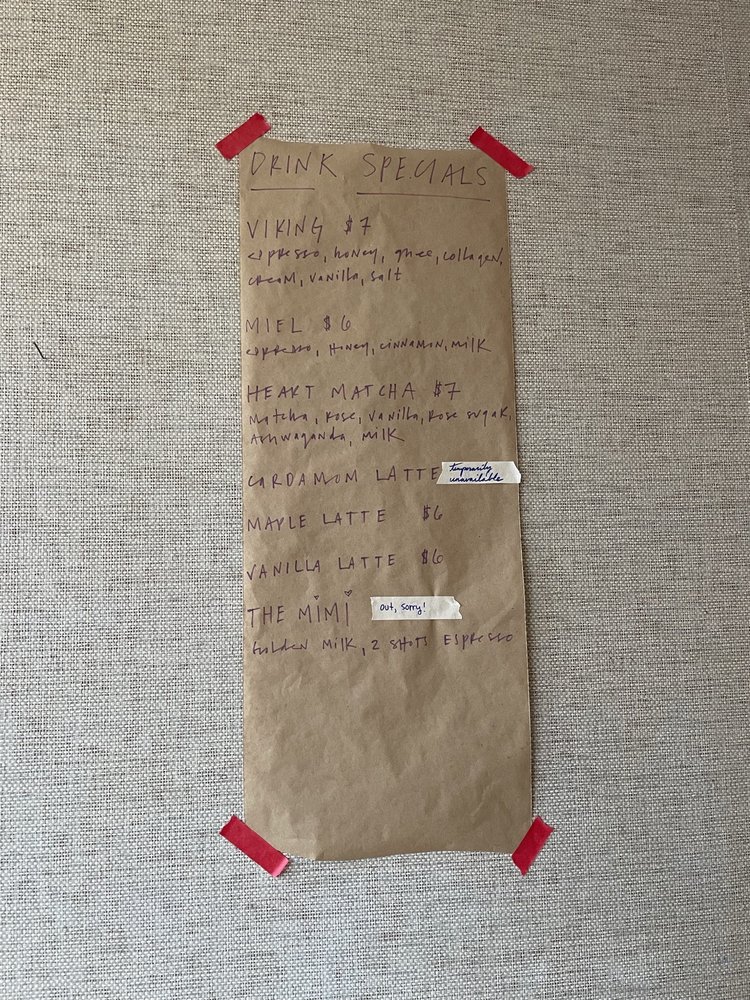 DRINK SPECIALS
VIKING $7
espresso, honey, ghee, collagen,
cream, vanilla, salt
MIEL $6
espresso, Honey, cinnamon, milk
HEART MATCHA $7
Matcha, rose, vanilla, Rose sugar,
Ashwaganda, milk
CARDAMOM LATTE temporarily
unavailable
MAPLE LATTE $6
VANILLA LATTE $6
THE MiMi out, sorry!
Golden Milk, 2 SHOTS ESPRESSO